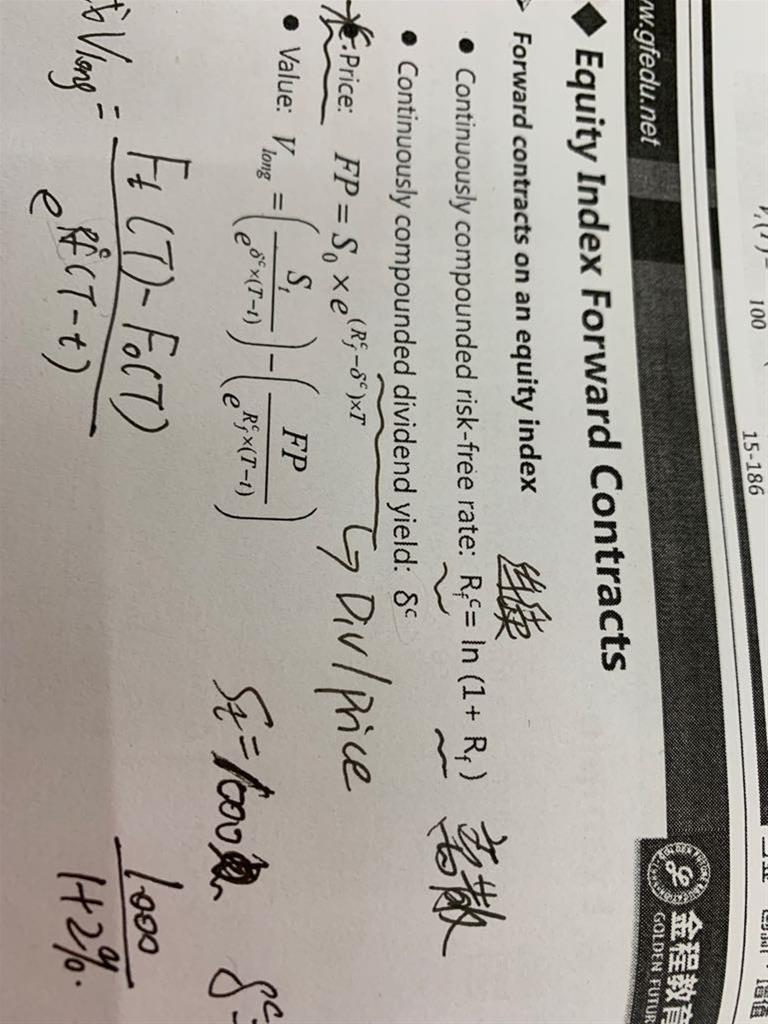 100
15-186
ww.gfedu.net
金程教育
GOLDEN FUTUR
◆ Equity Index Forward Contracts
Forward contracts on an equity index
连续
离散
● Continuously compounded risk-free rate: R_f^c = ln (1 + R_f)
● Continuously compounded dividend yield: δ^c
Div/price
●Price: FP = S_0 × e^{(R_f^c − δ^c)×T}
● Value: V_long = (S_t / e^{δ^c×(T−t)}) − (FP / e^{R_f^c×(T−t)})
S_t = 1000
δ^c =
V_long = (F_t(T) − F_0(T)) / e^{R_f^c(T−t)}
1000 / 1+2%